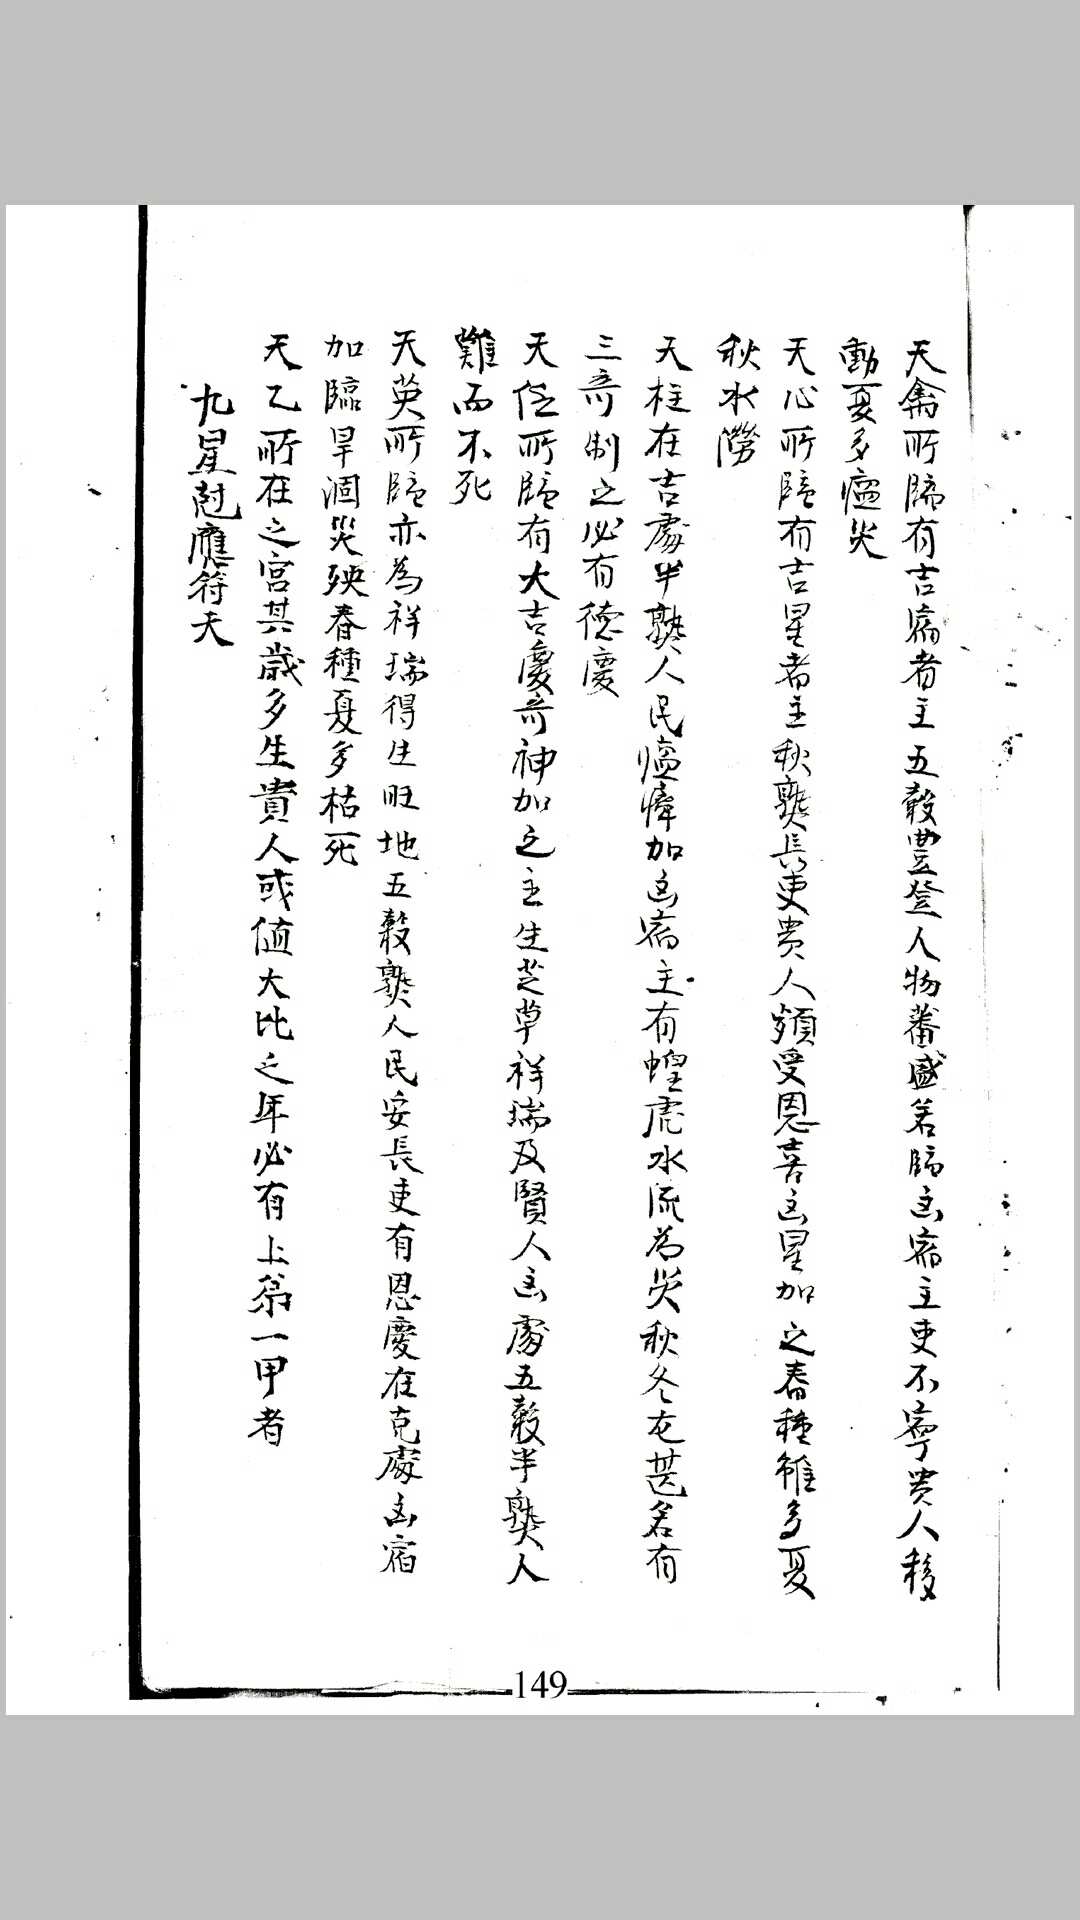 天禽所臨有吉宿者主五穀豐登人物蕃盛若臨凶宿主吏不寧貴人移
動夏多瘟災
天心所臨有吉星者主秋熟長吏貴人頻受恩喜凶星加之春種雖多夏
秋水澇
天柱在吉處半熟人民瘟瘴加凶宿主有蝗虎水流為災秋冬尤甚若有
三奇制之必有德慶
天任所臨有大吉慶奇神加之主生芝草祥瑞及賢人凶處五穀半熟人
難而不死
天英所臨亦為祥瑞得生旺地五穀熟人民安長吏有恩慶在克處凶宿
加臨旱涸災殃春種夏多枯死
天乙所在之宮其歲多生貴人或值大比之年必有上第一甲者
九星尅應符天
149